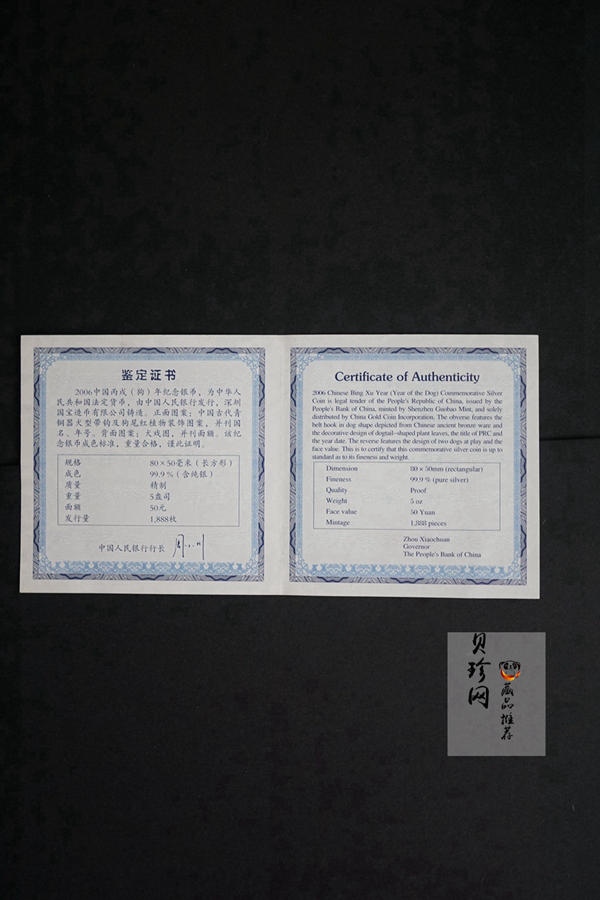 鉴定证书
2006中国丙戌(狗)年纪念银币,为中华人
民共和国法定货币,由中国人民银行发行,深圳
国宝造币有限公司铸造。正面图案:中国古代青
铜器犬型带钩及狗尾红植物装饰图案,并刊国
名、年号。背面图案:犬戏图,并刊面额。该纪
念银币成色标准,重量合格,谨此证明。
规格 80×50毫米(长方形)
成色 99.9%(含纯银)
质量 精制
重量 5盎司
面额 50元
发行量 1,888枚
中国人民银行行长
Certificate of Authenticity
2006 Chinese Bing Xu Year (Year of the Dog) Commemorative Silver
Coin is legal tender of the People's Republic of China, issued by the
People's Bank of China, minted by Shenzhen Guobao Mint, and solely
distributed by China Gold Coin Incorporation. The obverse features the
belt hook in dog shape depicted from Chinese ancient bronze ware and
the decorative design of dogtail-shaped plant leaves, the title of PRC and
the year date. The reverse features the design of two dogs at play and the
face value. This is to certify that this commemorative silver coin is up to
standard as to its fineness and weight.
Dimension 80×50mm (rectangular)
Fineness 99.9% (pure silver)
Quality Proof
Weight 5 oz
Face value 50 Yuan
Mintage 1,888 pieces
Zhou Xiaochuan
Governor
The People's Bank of China
贝珍网
藏品推荐